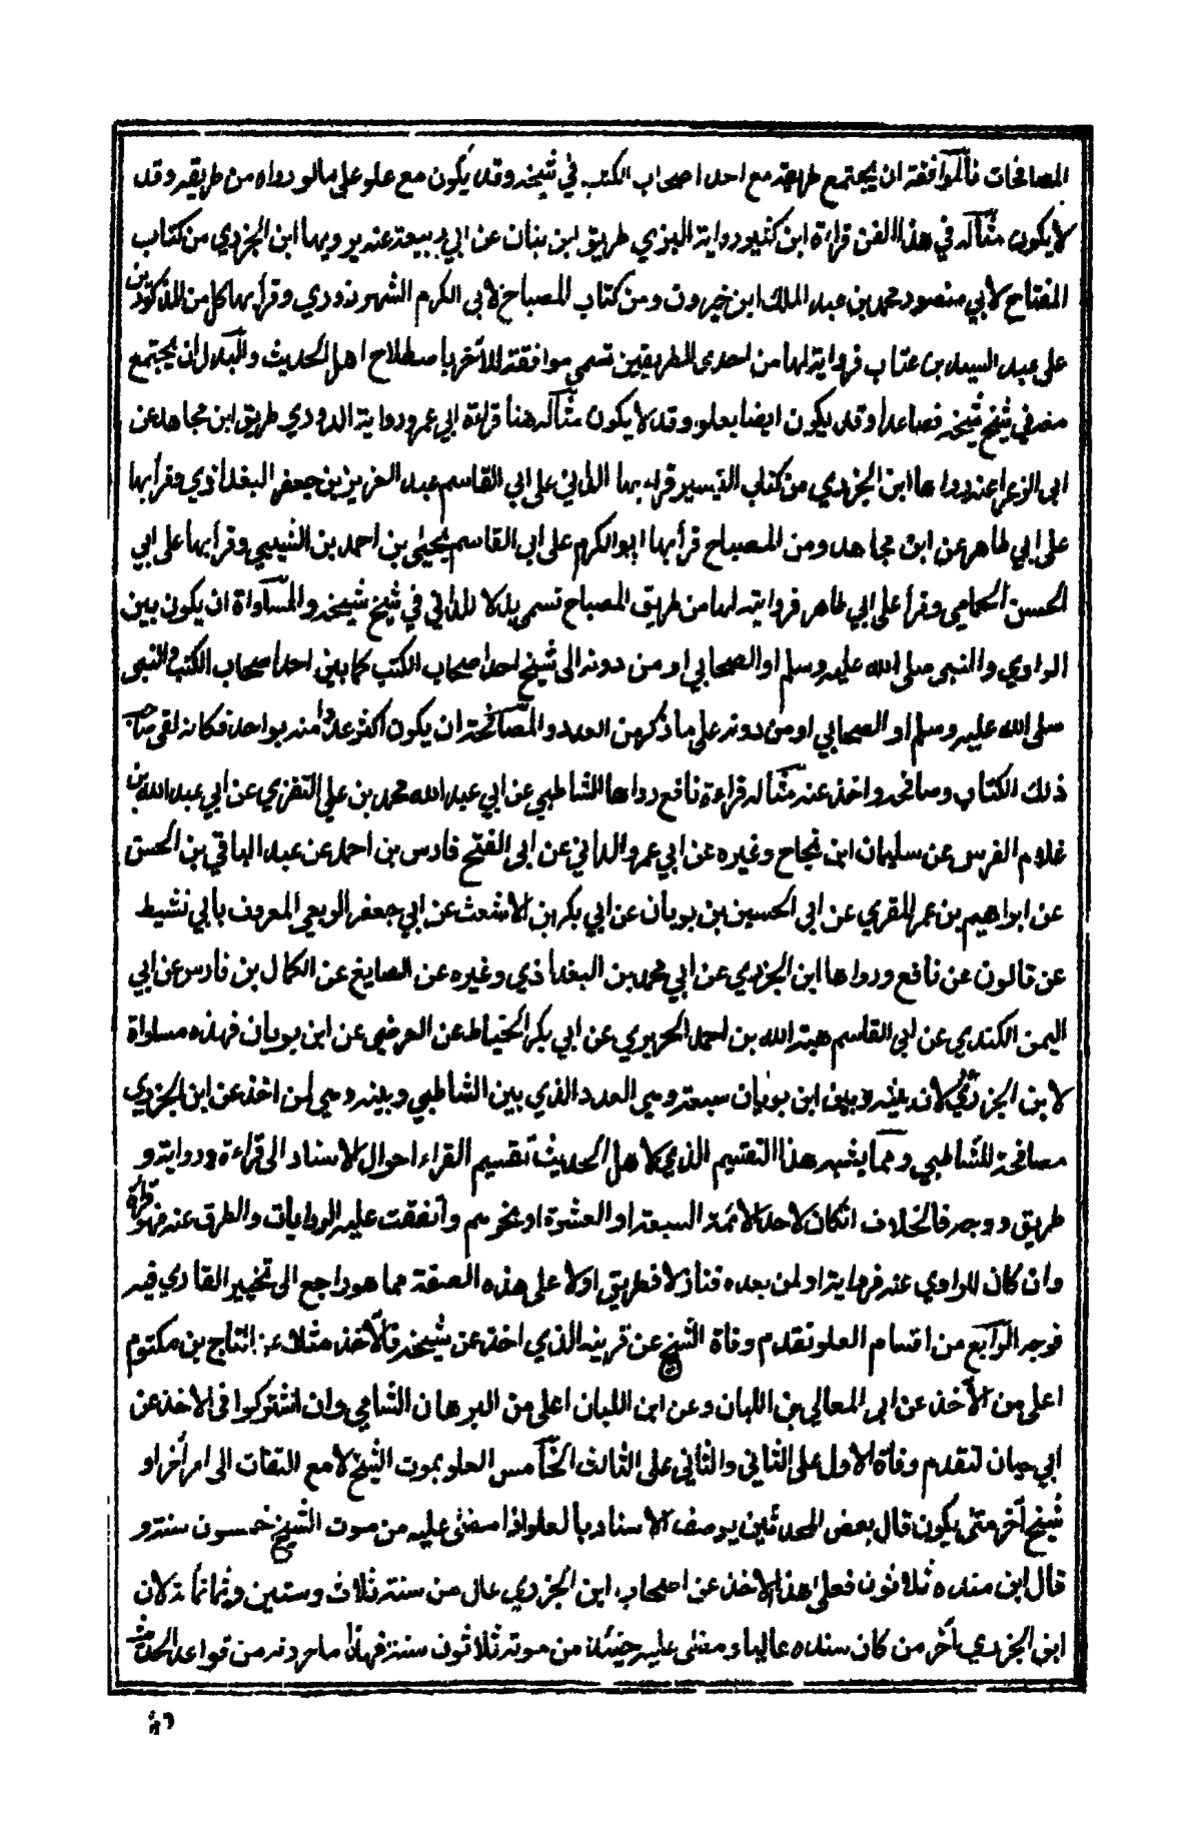 المصافحات فالموافقة ان يجتمع طريقه مع احد اصحاب الكتب في شيخه وقد يكون مع علو على مالو رواه من طريقه وقد
لا يكون مثاله في هذا الفن قراءة ابن كثير رواية البزي طريق ابن بنان عن ابي ربيعة عنه يرويها ابن الجزري من كتاب
المفتاح لابي منصور محمد بن عبد الملك ابن خيرون ومن كتاب المصباح لابي الكرم الشهرزوري وقرأ بها كل من المذكورين
على عبد السيد بن عتاب فروايته لها من احدى الطريقين تسمى موافقة للآخر باصطلاح اهل الحديث والبدل ان يجتمع
معه في شيخ شيخه فصاعدا وقد يكون ايضا بعلو وقد لا يكون مثاله هنا قراءة ابي عمرو رواية الدوري طريق ابن مجاهد عن
ابي الزعراء عنه رواها ابن الجزري من كتاب التيسير قرأ بها الداني على ابي القاسم عبد العزيز بن جعفر البغداذي وقرأ بها
على ابي طاهر عن ابن مجاهد ومن المصباح قرأ بها ابو الكرم على ابي القاسم يحيى بن احمد بن الشيبي وقرأ بها على ابي
الحسن الحمامي وقرأ على ابي طاهر فروايته لها من طريق المصباح تسمى بدلا للداني في شيخ شيخه والمساواة ان يكون بين
الراوي والنبي صلى الله عليه وسلم او الصحابي او من دونه الى شيخ احد اصحاب الكتب كما بين احد اصحاب الكتب والنبي
صلى الله عليه وسلم او الصحابي او من دونه على ما ذكر من العدد والمصافحة ان يكون اكثر عددا منه بواحد فكانه لقي صاحب
ذلك الكتاب وصافحه واخذ عنه مثاله قراءة نافع رواها الشاطبي عن ابي عبد الله محمد بن علي النفزي عن ابي عبد الله بن
غلام الفرس عن سليمان ابن نجاح وغيره عن ابي عمرو الداني عن ابي الفتح فارس بن احمد عن عبد الباقي بن الحسن
عن ابراهيم بن عمر المقري عن ابي الحسين بن بويان عن ابي بكر بن الاشعث عن ابي جعفر الربعي المعروف بابي نشيط
عن قالون عن نافع ورواها ابن الجزري عن ابي محمد بن البغداذي وغيره عن الصايغ عن الكمال بن فارس عن ابي
اليمن الكندي عن ابي القاسم هبة الله بن احمد الحريري عن ابي بكر الخياط عن الفرضي عن ابن بويان فهذه مساواة
لابن الجزري لان بينه وبين ابن بويان سبعة وهي العدد الذي بين الشاطبي وبينه وهي لمن اخذ عن ابن الجزري
مصافحة للشاطبي ومما يشبه هذا التقسيم الذي لاهل الحديث تقسيم القراء احوال الاسناد الى قراءة ورواية و
طريق ووجه فالخلاف ان كان لاحد الائمة السبعة او العشرة او نحوهم واتفقت عليه الروايات والطرق عنه فهو قراءة
وان كان للراوي عنه فرواية او لمن بعده فنازلا فطريق اولا على هذه الصفة مما هو راجع الى تخيير القاري فيه
فوجه الرابع من اقسام العلو تقدم وفاة الشيخ عن قرينه الذي اخذ عن شيخه فالآخذ مثلا عن التاج بن مكتوم
اعلى من الآخذ عن ابي المعالي بن اللبان وعن ابن اللبان اعلى من البرهان الشامي وان اشتركوا في الاخذ عن
ابي حيان لتقدم وفاة الاول على الثاني والثاني على الثالث الخامس العلو بموت الشيخ لا مع التفات الى امر آخر او
شيخ آخر متى يكون قال بعض المحدثين يوصف الاسناد بالعلو اذا مضى عليه من موت الشيخ خمسون سنة و
قال ابن منده ثلاثون فعلى هذا الاخذ عن اصحاب ابن الجزري عال من سنة ثلاث وستين وثمانمائة لان
ابن الجزري آخر من كان سنده عاليا ومضى عليه حينئذ من موته ثلاثون سنة فهذا ما حررته من قواعد الحديث